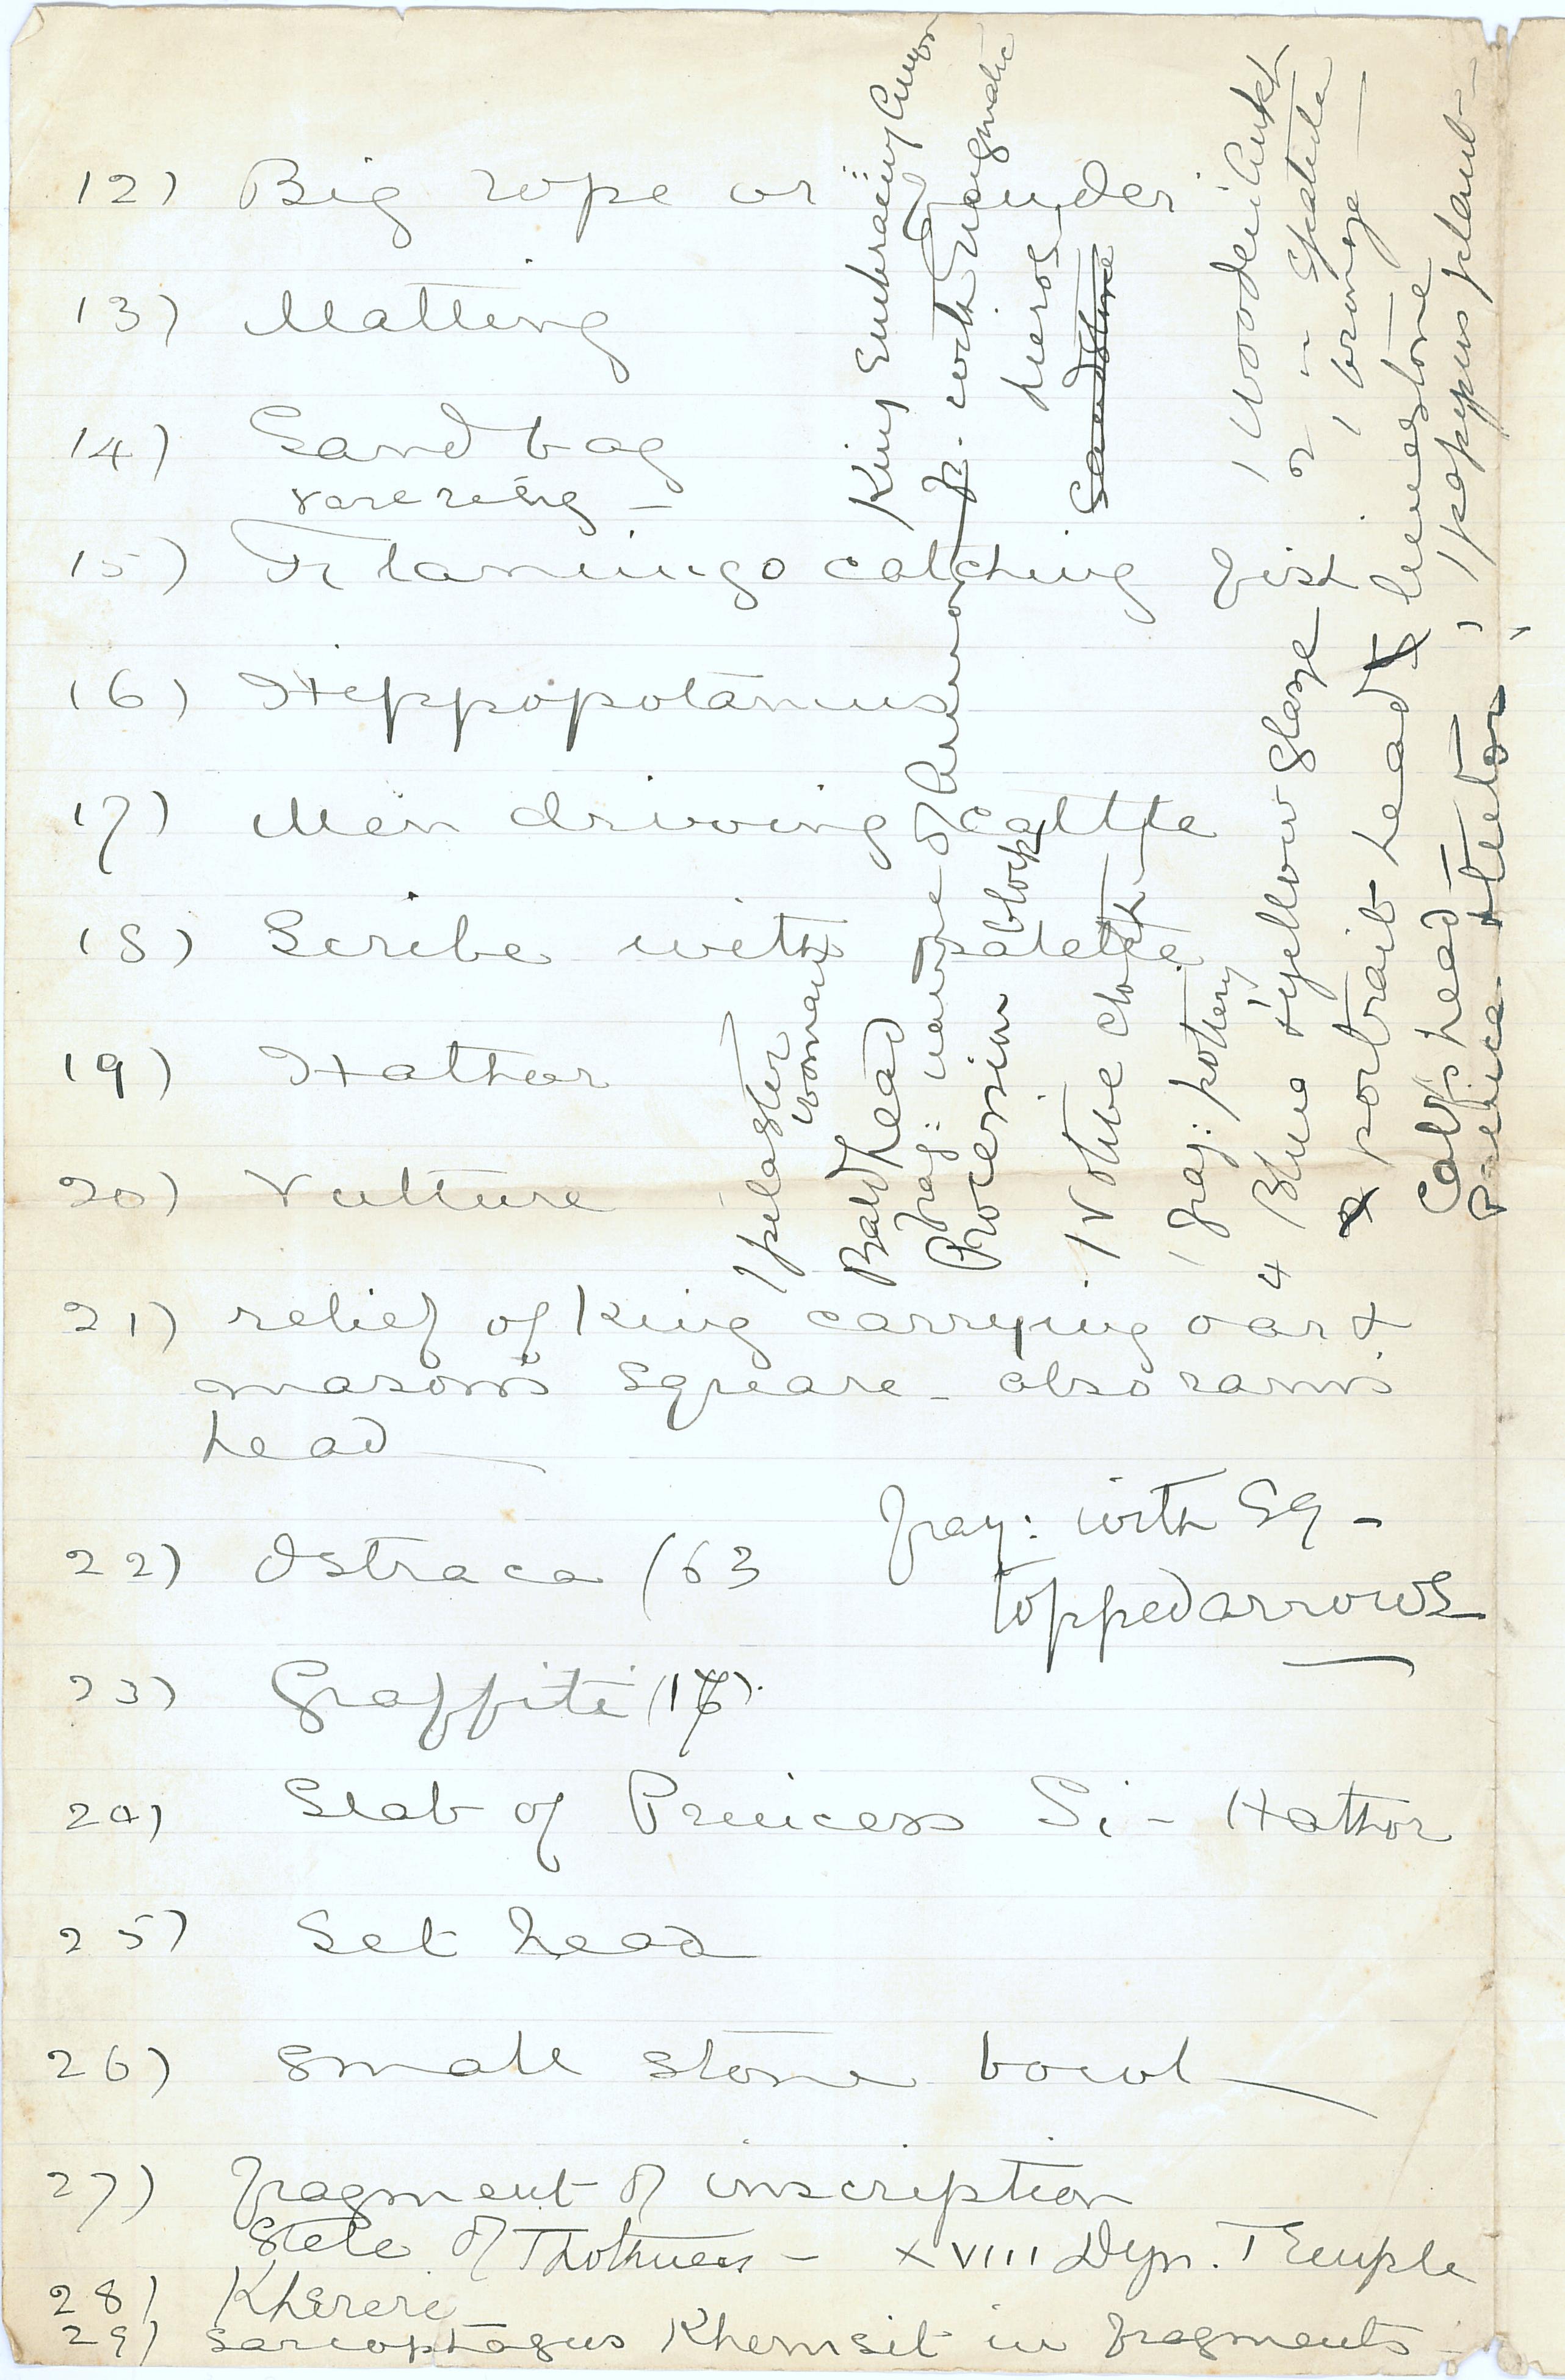 12) Big rope or fender
13) Matting
14) Sand bag
rare
15) Flamingo catching fish
16) Hippopotamus
17) Men driving cattle
18) Scribe with palette
19) Hathor
20) Vulture
21) relief of king carrying oar &
mason's square - also rams
head
22) Ostraca (63
frag: with sq -
topped arrows
23) Graffiti (17)
24) Slab of Princess Si - Hathor
25) Set head
26) Small stone bowl
27) fragment of inscription
Stele of Thothmes - XVIII Dyn. Temple
28)
29) sarcophagus Khemsit in fragments
King Embracing Amon
with enigmatic
hierog
Sandstone
1 Wooden Ankh
2 - spatula
1 bronze
1 papyrus plant -
1 pilaster
woman
Bald head
frag: name of
Procession blocks
1 Votive cloth -
1 frag: pottery
4 Blue & yellow glaze
portrait head limestone
Calf's head -